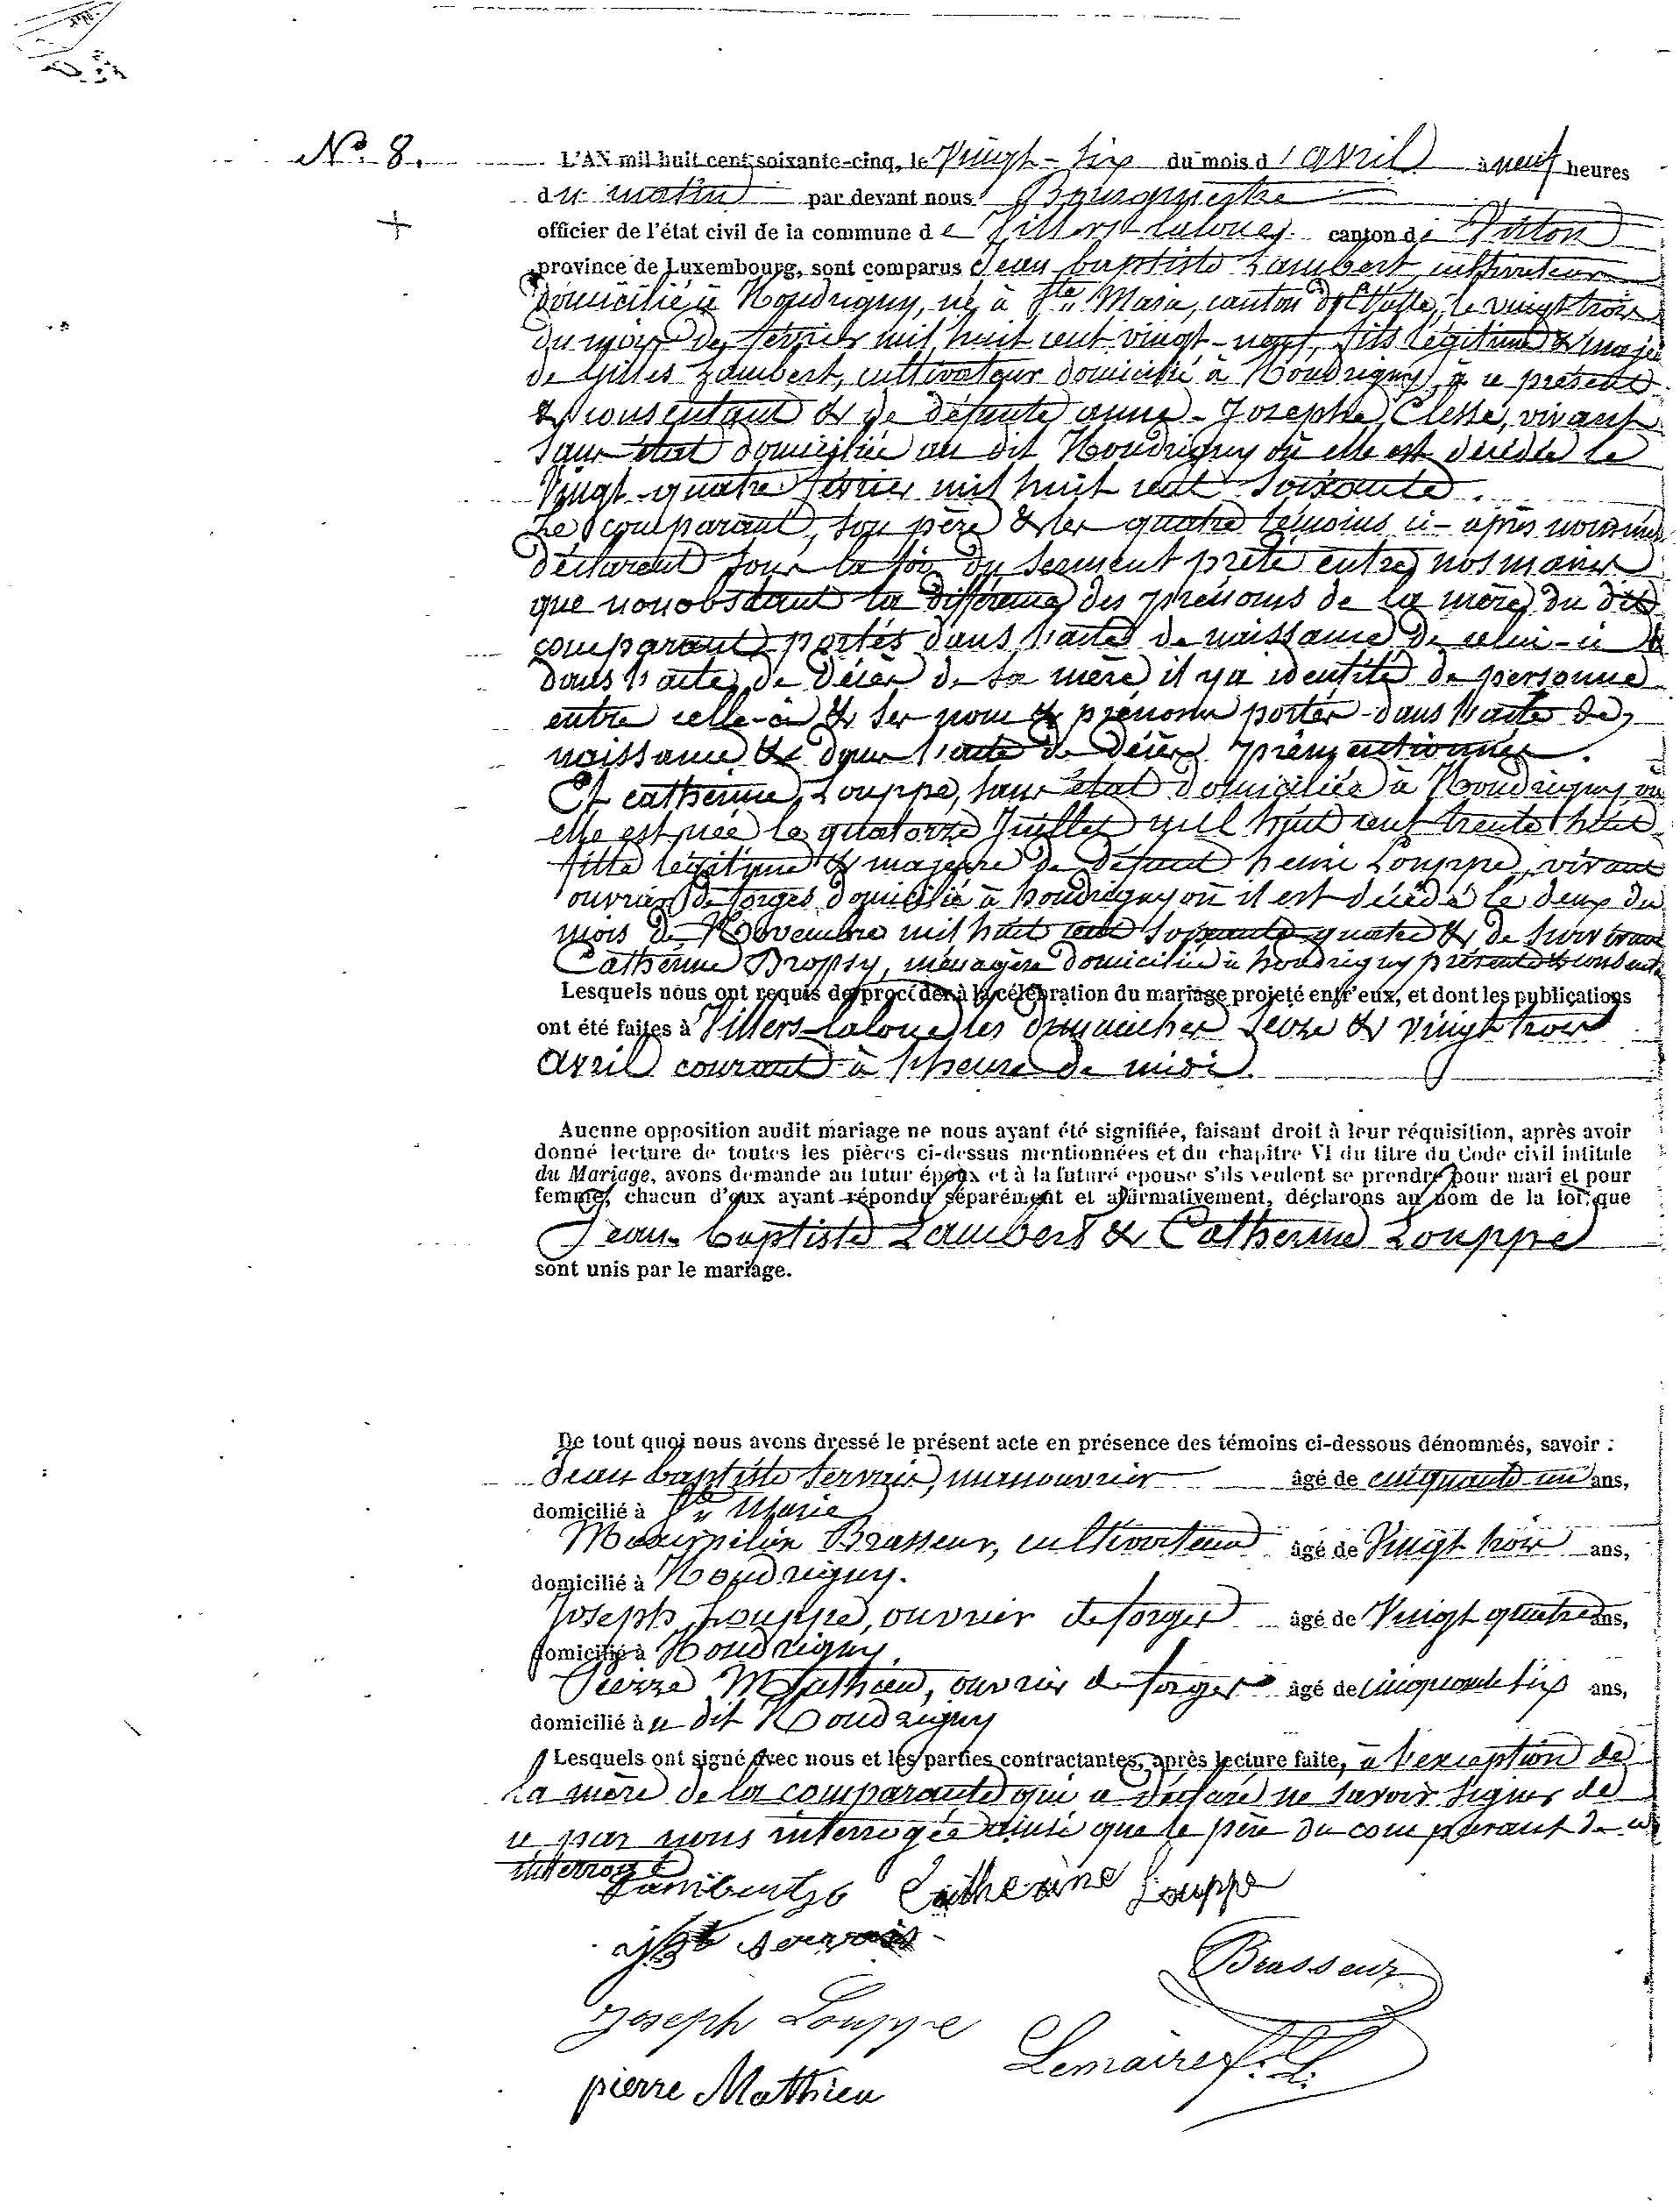 N° 8.
L'AN mil huit cent soixante-cinq, le Vingt-six du mois d'avril à neuf heures
du matin par devant nous Bourgmestre
officier de l'état civil de la commune de Villers-laloue, canton de Virton
province de Luxembourg, sont comparus Jean baptiste Lambert, cultivateur
domicilié à Houdrigny, né à Ste Marie, canton d'Etalle, le vingt trois
du mois de février mil huit cent vingt-neuf, fils légitime & majeur
de Gilles Lambert, cultivateur domicilié à Houdrigny, à ce présent
& consentant & de défunte anne-Josephe Clesse, vivant
sans état domiciliée au dit Houdrigny où elle est décédée le
Vingt-quatre février mil huit cent soixante.
Le comparant, son père & les quatre témoins ci-après nommés
déclarent sous la foi du serment prêté entre nos mains
que nonobstant la différence des prénoms de la mère du dit
comparant portés dans l'acte de naissance de celui-ci &
dans l'acte de décès de sa mère il y a identité de personne
entre celle-ci & ses nom & prénoms portés dans l'acte de
naissance & dans l'acte de décès prémentionnés.
Et catherine Louppe, sans état domiciliée à Houdrigny, où
elle est née le quatorze Juillet mil huit cent trente huit
fille légitime & majeure de défunt henri Louppe, vivant
ouvrier de forges domicilié à houdrigny où il est décédé le deux du
mois de Novembre mil huit cent soixante quatre & de survivante
Catherine Dropsy, ménagère domiciliée à houdrigny présente & consent.
Lesquels nous ont requis de procéder à la célébration du mariage projeté entr'eux, et dont les publications
ont été faites à Villers-laloue les dimanches seize & vingt trois
avril courant à l'heure de midi.
Aucune opposition audit mariage ne nous ayant été signifiée, faisant droit à leur réquisition, après avoir
donné lecture de toutes les pièces ci-dessus mentionnées et du chapitre VI du titre du Code civil intitulé
du Mariage, avons demande au futur époux et à la future epouse s'ils veulent se prendre pour mari et pour
femme, chacun d'eux ayant répondu séparément et affirmativement, déclarons au nom de la loi que
Jean-baptiste Lambert & Catherine Louppe
sont unis par le mariage.
De tout quoi nous avons dressé le présent acte en présence des témoins ci-dessous dénommés, savoir :
Jean baptiste Servais, manouvrier âgé de cinquante un ans,
domicilié à Ste Marie
Maximilien Brasseur, cultivateur âgé de Vingt trois ans,
domicilié à Houdrigny.
Joseph Louppe, ouvrier de forges âgé de Vingt quatre ans,
domicilié à Houdrigny.
Pierre Mathieu, ouvrier de forges âgé de cinquante six ans,
domicilié au dit Houdrigny
Lesquels ont signé avec nous et les parties contractantes, après lecture faite, à l'exception de
la mère de la comparante qui a déclaré ne savoir signer de
ce par nous interrogée ainsi que le père du comparant de ce
interrogé
Lambert jb Catherine Louppe
jbt servais
Brasseur
Joseph Louppe
Lemaire
pierre Matthieu